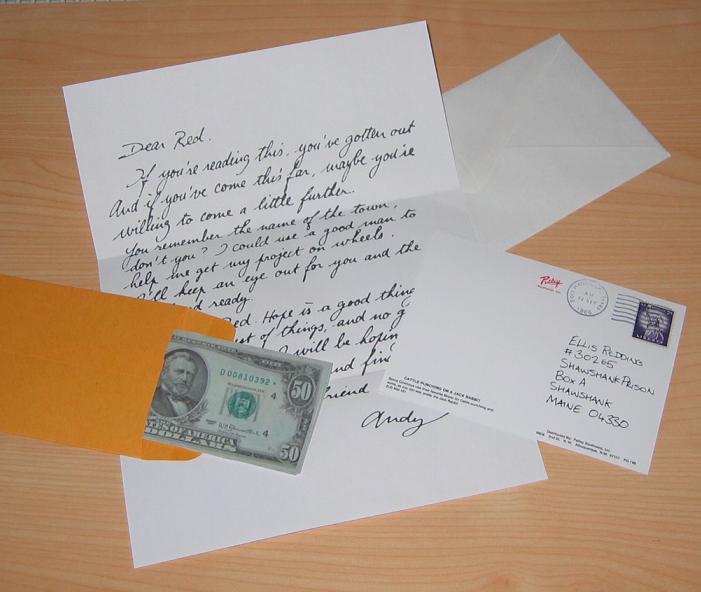 Dear Red.
If you're reading this, you've gotten out
And if you've come this far, maybe you're
willing to come a little further.
You remember the name of the town,
don't you? I could use a good man to
help me get my project on wheels.
I'll keep an eye out for you and the
ready.
Red. Hope is a good thing
of things, and no g
I will be hopin
and fin
friend
Andy
D 00810392 *
50
4
4
50
STATES OF AMERICA
DOLLARS
Petley
1965
ELLIS REDDING
#30265
SHAWSHANK PRISON
BOX A
SHAWSHANK
MAINE 04330
CATTLE PUNCHING ON A JACK RABBIT